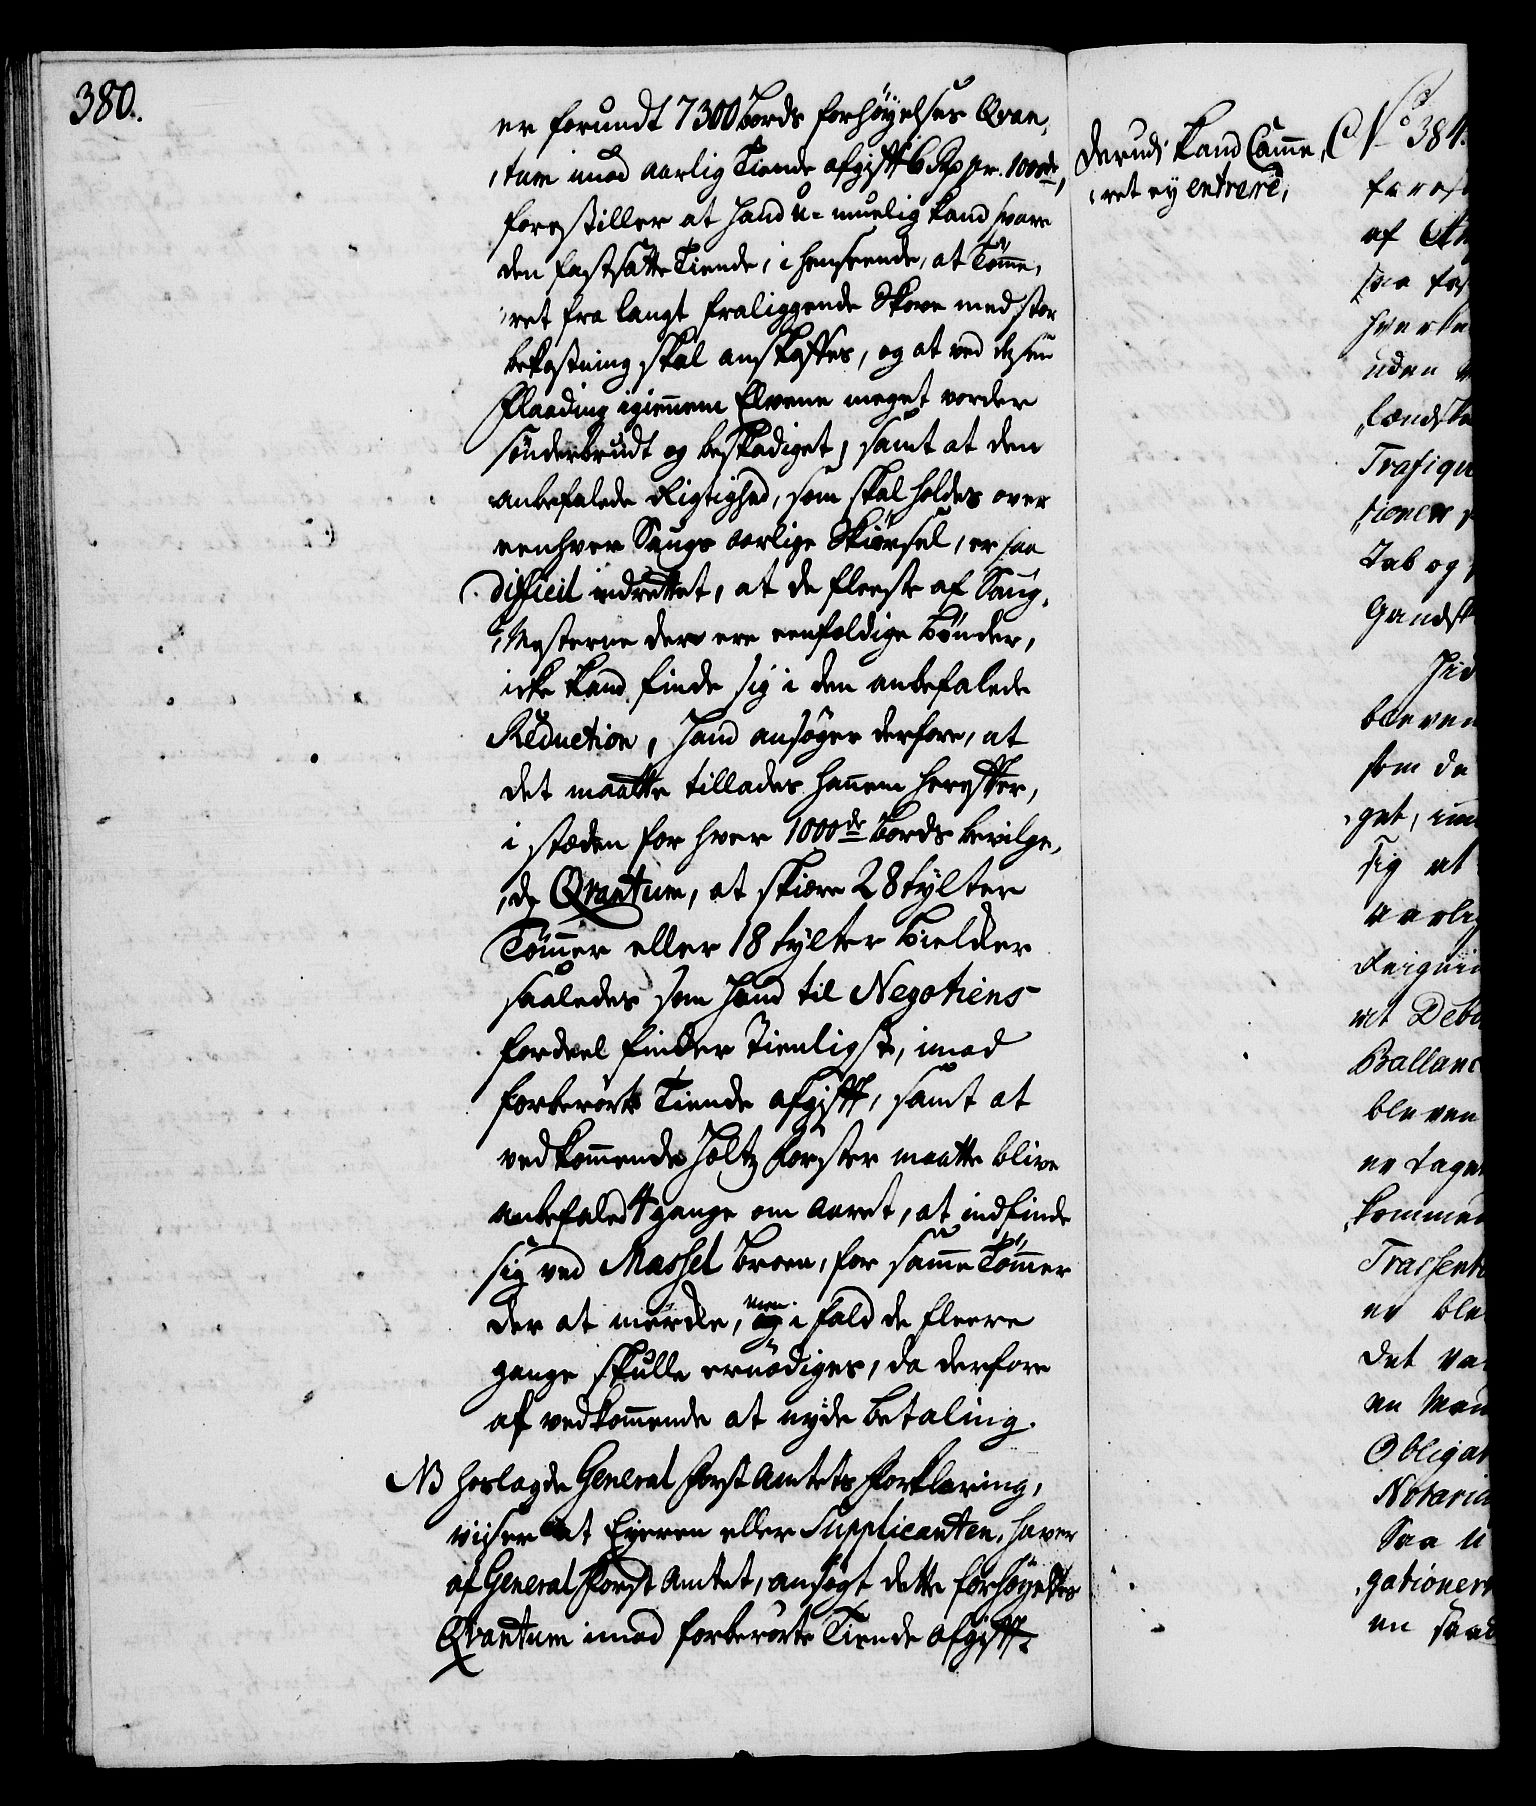 380.
er forundt 7300 Bords forhøyelses Qvan,
,tum imod aarlig Tiende afgift 6 Rdr pr. 1000de,
forestiller at hand u-muelig kand svare
den fastsatte Tiende, i henseende, at Tømme,
,ret fra langt fraliggende Skove med stor
bekostning skal anskaffes, og at ved dessen
Flaading igiennem Elvene meget vorder
sønderbrudt og beskadiget, samt at den
anbefalede Rigtighed, som skal holdes over
eenhver Saugs aarlige Skiørsel, er saa
difficil indrettet, at de fleeste af Saug,
,Mesterne der ere eenfoldige bønder,
icke kand finde sig i den anbefalede
Reduction, hand ansøger derfore, at
det maatte tillades hannem herefter,
i stæden for hver 1000de Bords bevilge,
,de Qvantum, at skiære 28 tylter
Tømmer eller 18 tylter Bielcker
saaledes som hand til Negotiens
fordeel finder tienligst, imod
forberørte Tiende afgift, samt at
vedkommende Holtz Førster maatte blive
anbefaled 4 gange om aaret, at indfinde
sig ved Massel Broen, for samme Tømmer
der at mercke, men i fald de fleere
gange skulle ernødiges, da derfore
af vedkommende at nyde betaling.
NB hoslagde General Forst Amtets Forklaring,
viiser at Eyeren eller Supplicanten, haver
af General Forst Amtet, ansøgt dette forhøyelses
Qvantum imod forberørte Tiende afgift.
Derudi kand Camme,
,ret ey entrere,
No 384.
af
uden
Trafiqu
tioners
Tab og
Gandsk
bleven
som de
get, im
sig at
aarlig
et Debi
Ballanc
bleven
er tagen
kommen
Trassent
er ble
det va
en Man
Obligat
Notaria
Saa u
gationern
en saad